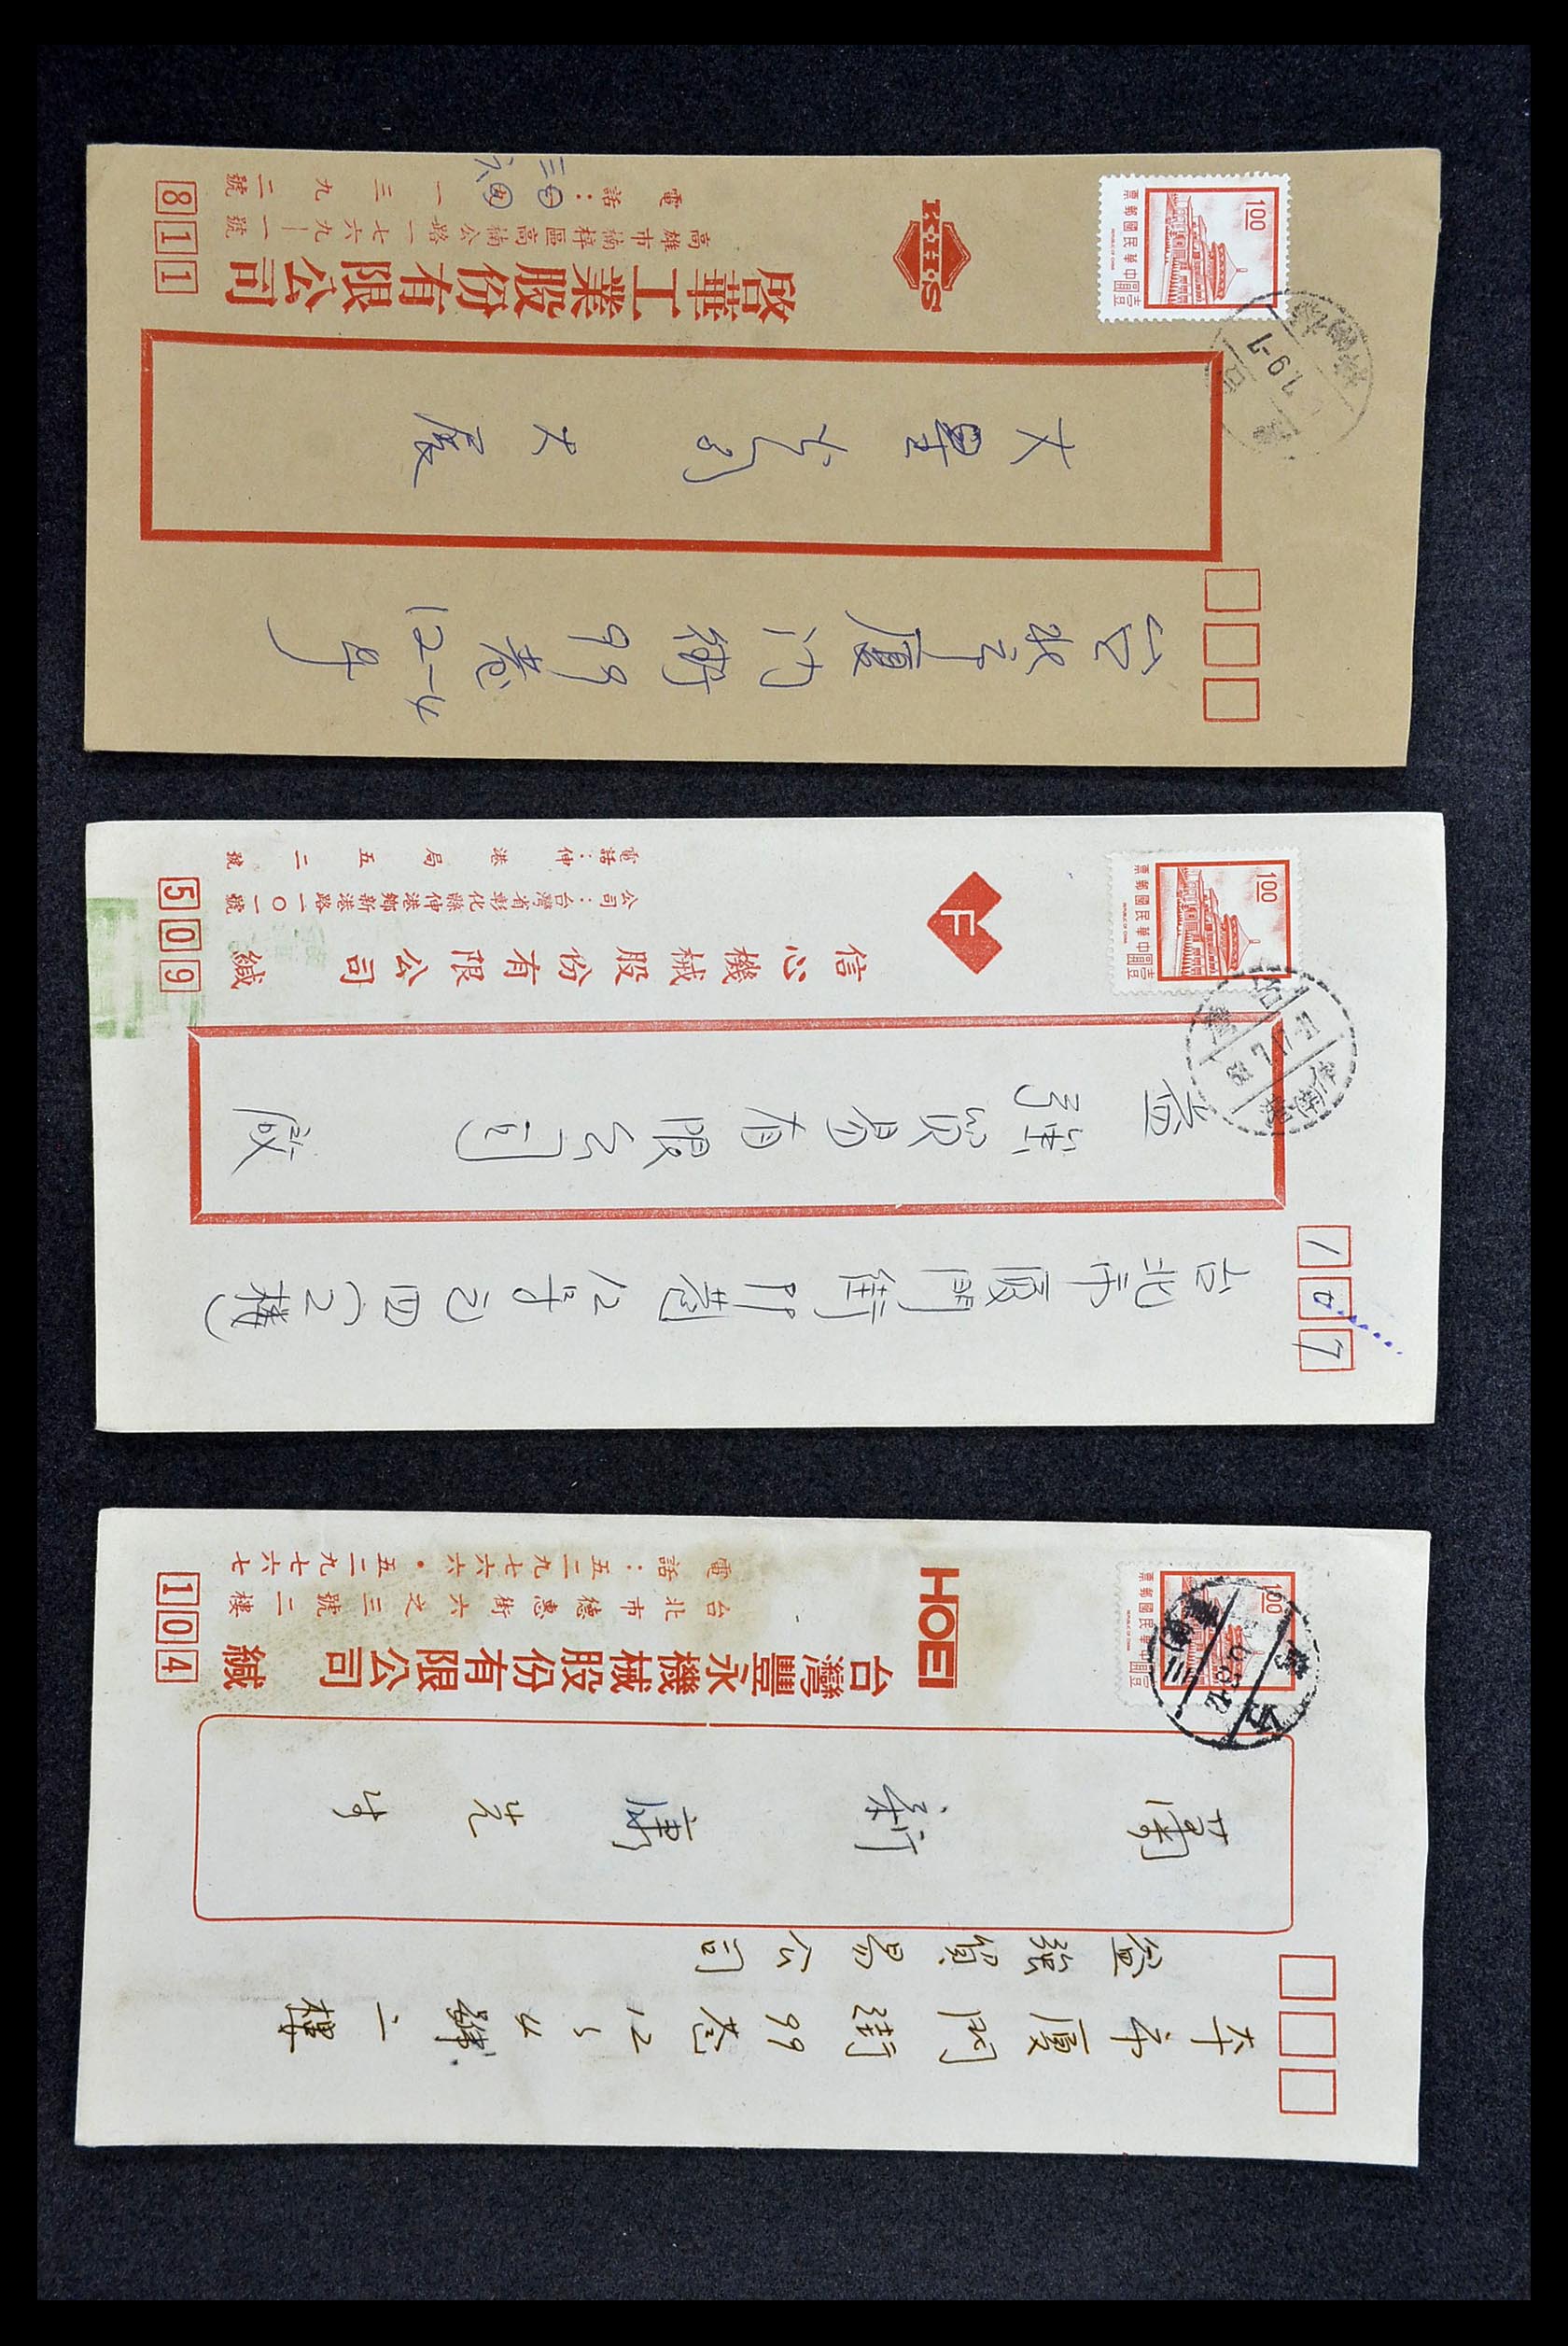 1.00
中華民國郵票
REPUBLIC OF CHINA
壹圓
7.9.1
K.H.S
台北市廈門街99巷12-4号
啓華工業股份有限公司
高雄市楠梓區高楠公路一七六九|一號
電話:三一三九二號
811
1.00
中華民國郵票
REPUBLIC OF CHINA
壹圓
F
107
台北市廈門街99巷12号之四(2樓)
盈強貿易有限公司 啟
信心機械股份有限公司 緘
公司:台灣省彰化縣伸港鄉新港路一〇一號
電話:伸港局五二號
509
1.00
中華民國郵票
REPUBLIC OF CHINA
壹圓
HOEI
本市廈門街99巷12之4號二樓
盈強貿易公司
先生
台灣豐永機械股份有限公司 緘
台北市德惠街六之三號二樓
電話:五二九七六六・五二九七七六六七
104